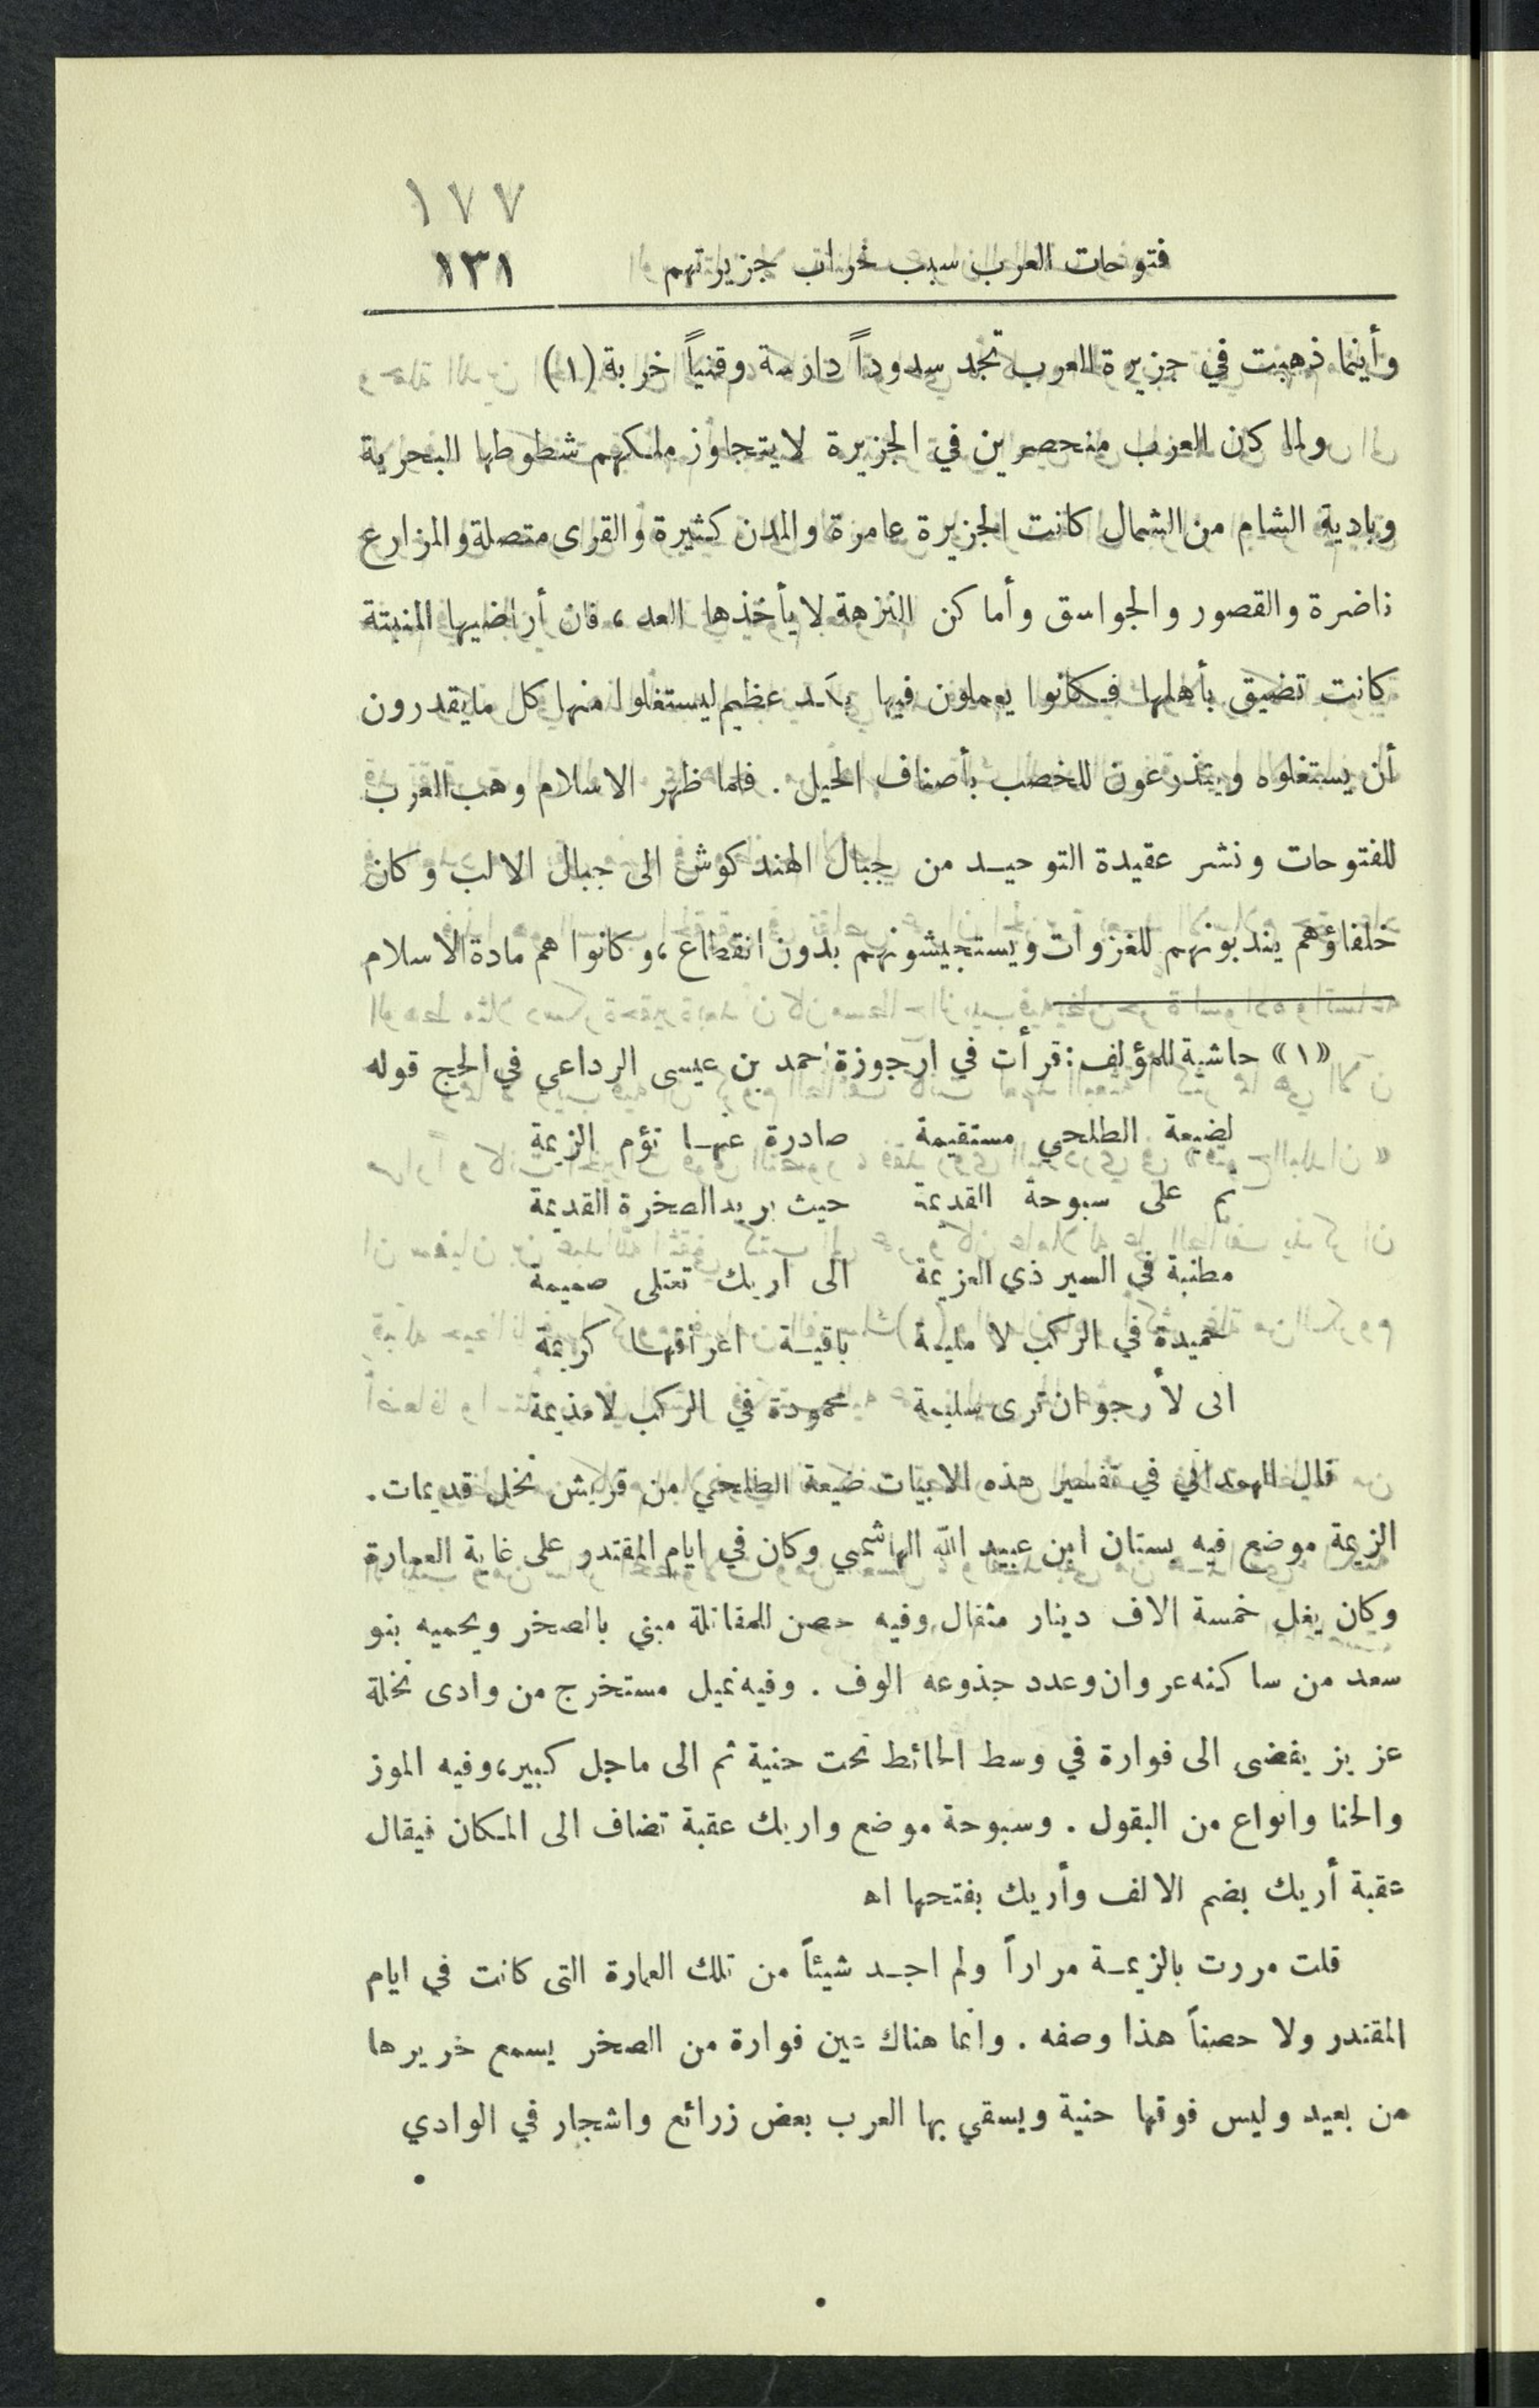 ١٧٧
فتوحات العرب سبب خراب جزيرتهم ١٣١
وأينما ذهبت في جزيرة العرب تجد سدوداً دارسة وقنياً خربة (١)
ولما كان العرب منحصرين في الجزيرة لا يتجاوز ملكهم شطوطها البحرية
وبادية الشام من الشمال كانت الجزيرة عامرة والمدن كثيرة والقرى متصلة والمزارع
ناضرة والقصور والجواسق وأماكن النزهة لا يأخذها العد، فان أراضيها المنبتة
كانت تضيق بأهلها فكانوا يعملون فيها بكد عظيم ليستغلوا منها كل ما يقدرون
أن يستغلوه ويتذرعون للخصب بأصناف الحيل. فلما ظهر الاسلام وهب العرب
للفتوحات ونشر عقيدة التوحيد من جبال الهندكوش الى جبال الالب وكان
خلفاؤهم يندبونهم للغزوات ويستجيشونهم بدون انقطاع، وكانوا هم مادة الاسلام
«١» حاشية للمؤلف: قرأت في ارجوزة احمد بن عيسى الرداعي في الحج قوله
لضيعة الطلحي مستقيمة صادرة عنها تؤم الزيمة
ثم على سبوحة القديمة حيث بريد الصخرة القديمة
مطنبة في السير ذي العزيمة الى اريك تعتلى صميمة
حميدة في الركب لا مليمة باقية اعراقها كريمة
انى لأرجو ان ترى سليمة محمودة في الركب لا مذيمة
قال الهمداني في تفسير هذه الابيات ضيعة الطلحي من قريش نخل قديمات.
الزيمة موضع فيه بستان ابن عبيد الله الهاشمي وكان في ايام المقتدر على غاية العمارة
وكان يغل خمسة الاف دينار مثقال وفيه حصن للمقاتلة مبني بالصخر ويحميه بنو
سعد من ساكنه عروان وعدد جذوعه الوف. وفيه غيل مستخرج من وادى نخلة
عزيز يفضى الى فوارة في وسط الحائط تحت حنية ثم الى ماجل كبير، وفيه الموز
والحنا وانواع من البقول. وسبوحة موضع واريك عقبة تضاف الى المكان فيقال
عقبة أريك بضم الالف وأريك بفتحها اه
قلت مررت بالزيمة مراراً ولم اجد شيئاً من تلك العمارة التى كانت في ايام
المقتدر ولا حصناً هذا وصفه. وانما هناك عين فوارة من الصخر يسمع خريرها
من بعيد وليس فوقها حنية ويسقي بها العرب بعض زرائع واشجار في الوادي